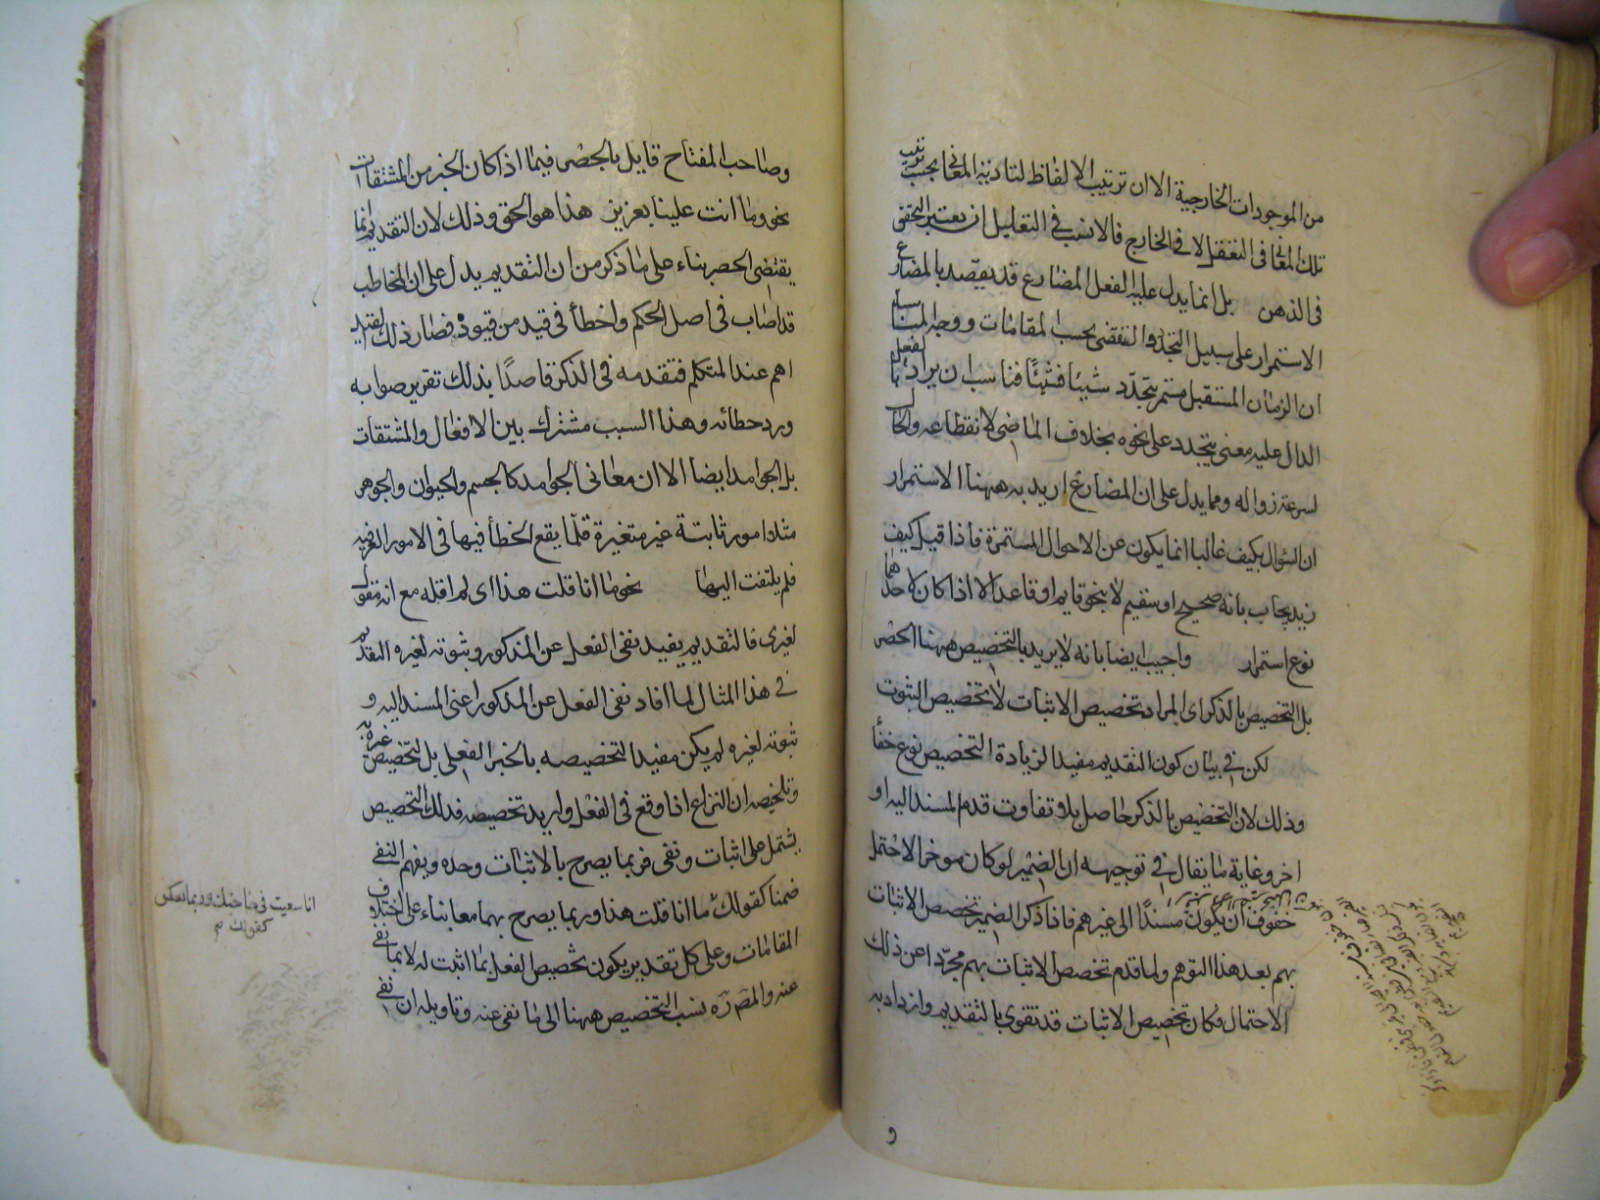 من الموجودات الخارجية الا ان ترتيب الالفاظ لتادية المعانى بحسب ترتيب
تلك المعانى فى التعقل لا فى الخارج فالانسب فى التعليل ان يعتبر التحقق
فى الذهن بل انما يدل عليه الفعل المضارع قد يقصد بالمضارع
الاستمرار على سبيل التجدد والتقضى بحسب المقامات ووجه المناسبة
ان الزمان المستقبل مستمر يتجدد شيئا فشيئا فناسب ان يراد بالفعل
الدال عليه معنى يتجدد على نحوه بخلاف الماضى لانقطاعه والحال
لسرعة زواله ومما يدل على ان المضارع اريد به ههنا الاستمرار
ان السؤال بكيف غالبا انما يكون عن الاحوال المستمرة فاذا قيل كيف
زيد يجاب بانه صحيح او سقيم لا بنحو قايم او قاعد الا اذا كان لاحدهما
نوع استمرار واجيب ايضا بانه لا يريد بالتخصيص ههنا الحصر
بل التخصيص بالذكر اى المراد تخصيص الاثبات لا تخصيص الثبوت
لكن فى بيان كون التقديم مفيدا لزيادة التخصيص نوع خفأ
وذلك لان التخصيص بالذكر حاصل بلا تفاوت قدم المسند اليه او
اخر وغاية ما يقال فى توجيهه ان الضمير لو كان موخرا لاحتمل
خفوف ان يكون مسندا الى غيرهم فاذا ذكر الضمير تخصص الاثبات
بهم بعد هذا التوهم ولما قدم تخصص الاثبات بهم مجردا عن ذلك
الاحتمال فكان تخصيص الاثبات قد تقوى بالتقديم وازداد به
و
وصاحب المفتاح قايل بالحصر فيما اذا كان الخبر من المشتقات
نحو وما انت علينا بعزيز هذا هو الحق وذلك لان التقديم انما
يقتضى الحصر بناء على ما ذكر من ان التقديم يدل على ان المخاطب
قد اصاب فى اصل الحكم واخطأ فى قيد من قيوده فصار ذلك القيد
اهم عند المتكلم فتقدمه فى الذكر قاصدا بذلك تقرير صوابه
ورد خطائه وهذا السبب مشترك بين الافعال والمشتقات
بل الجوامد ايضا الا ان معانى الجوامد كالجسم والحيوان والجوهر
مثلا امور ثابتة غير متغيرة قلما يقع الخطأ فيها فى الامور العرفية
فلم يلتفت اليها نحو ما انا قلت هذا اى لم اقله مع انه مقول
لغيرى فالتقديم يفيد نفى الفعل عن المذكور وثبوته لغيره التقديم
فى هذا المثال لما افاد نفى الفعل عن المذكور اعنى المسند اليه و
ثبوته لغيره لم يكن مفيدا لتخصيصه بالخبر الفعلى بل لتخصيص غيره به
وتلخيصه ان النزاع اذا وقع فى الفعل واريد تخصيصه فذلك التخصيص
يشتمل على اثبات ونفى فربما يصرح بالاثبات وحده ويفهم النفى
ضمنا كقولك ما انا قلت هذا وربما يصرح بهما معا بناء على اختلاف
المقامات وعلى كل تقدير يكون تخصيص الفعل بما اثبت له لا بما نفى
عنه والمص ره نسب التخصيص ههنا الى ما نفى عنه وتاويله ان نفى
انا سعيت فى حاجتك وربما يعكس
كقولك صح